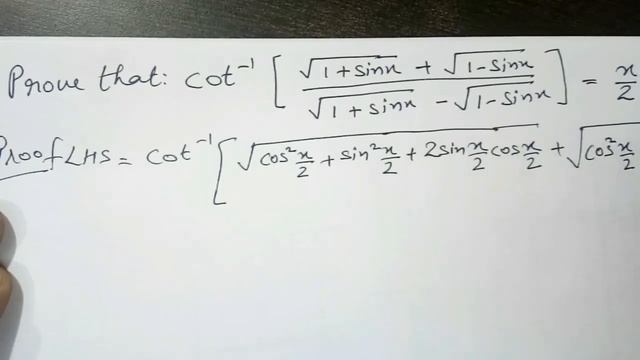 Prove that: cot⁻¹ [ (√(1+sinx) + √(1-sinx)) / (√(1+sinx) - √(1-sinx)) ] = x/2
Proof LHS = cot⁻¹ [ √(cos²x/2 + sin²x/2 + 2sin x/2 cos x/2) + √(cos²x/2